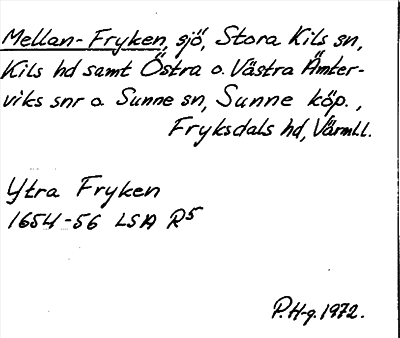 Mellan-Fryken, sjö, Stora Kils sn,
Kils hd samt Östra o. Västra Ämter-
viks snr o. Sunne sn, Sunne köp.,
Fryksdals hd, Värml.
Ytra Fryken
1654-56 LSA R5
P.H-g. 1972.